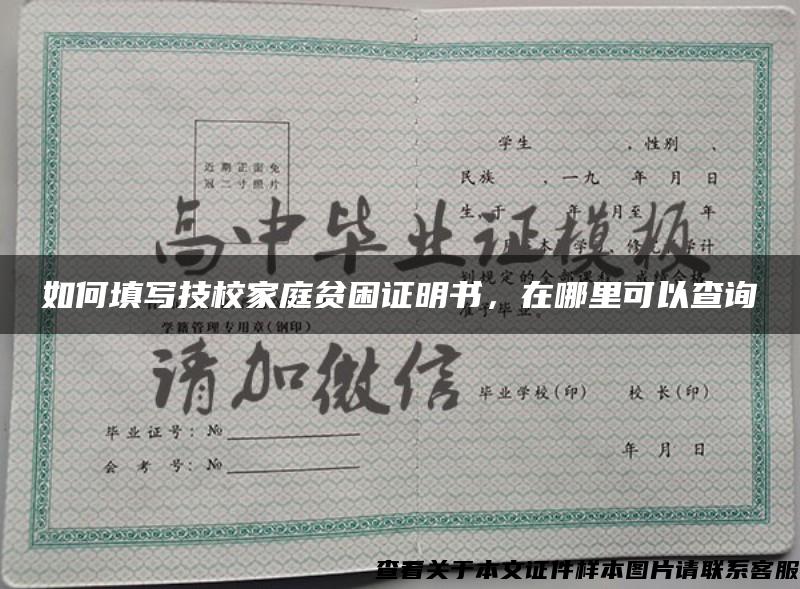 近期正面免
冠二寸照片
学籍管理专用章(钢印)
毕业证号：№
会考号：№
学生 ，性别 、
民族 ，一九 年 月 日
生 于 年 月至 年
月 本 学 修 学计
划规定的全部课程 成绩合格
准予毕业。
毕业学校(印) 校长(印)
年 月 日
高中毕业证模板
请加微信
如何填写技校家庭贫困证明书，在哪里可以查询
查看关于本文证件样本图片请联系客服